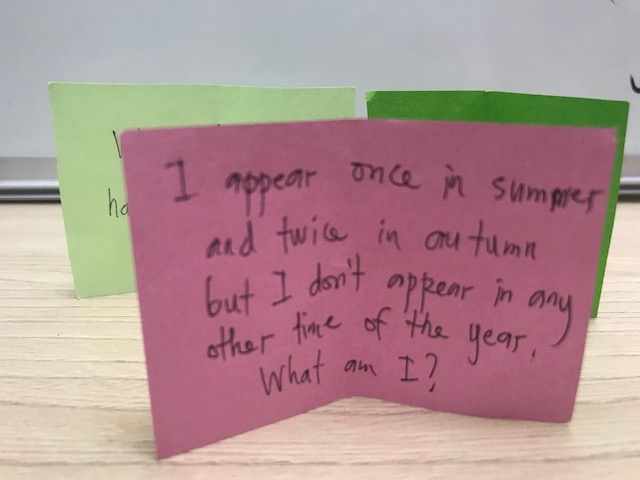 I appear once in summer
and twice in autumn
but I don't appear in any
other time of the year.
What am I?